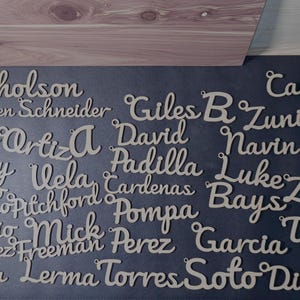 holson
en Schneider
Giles B Zuni
Ortiz A David Navin
Padilla
Vela Cardenas Luke Z
Pitchford Pompa Bays
Mick
Freeman Perez Garcia
Lerma Torres Soto Di